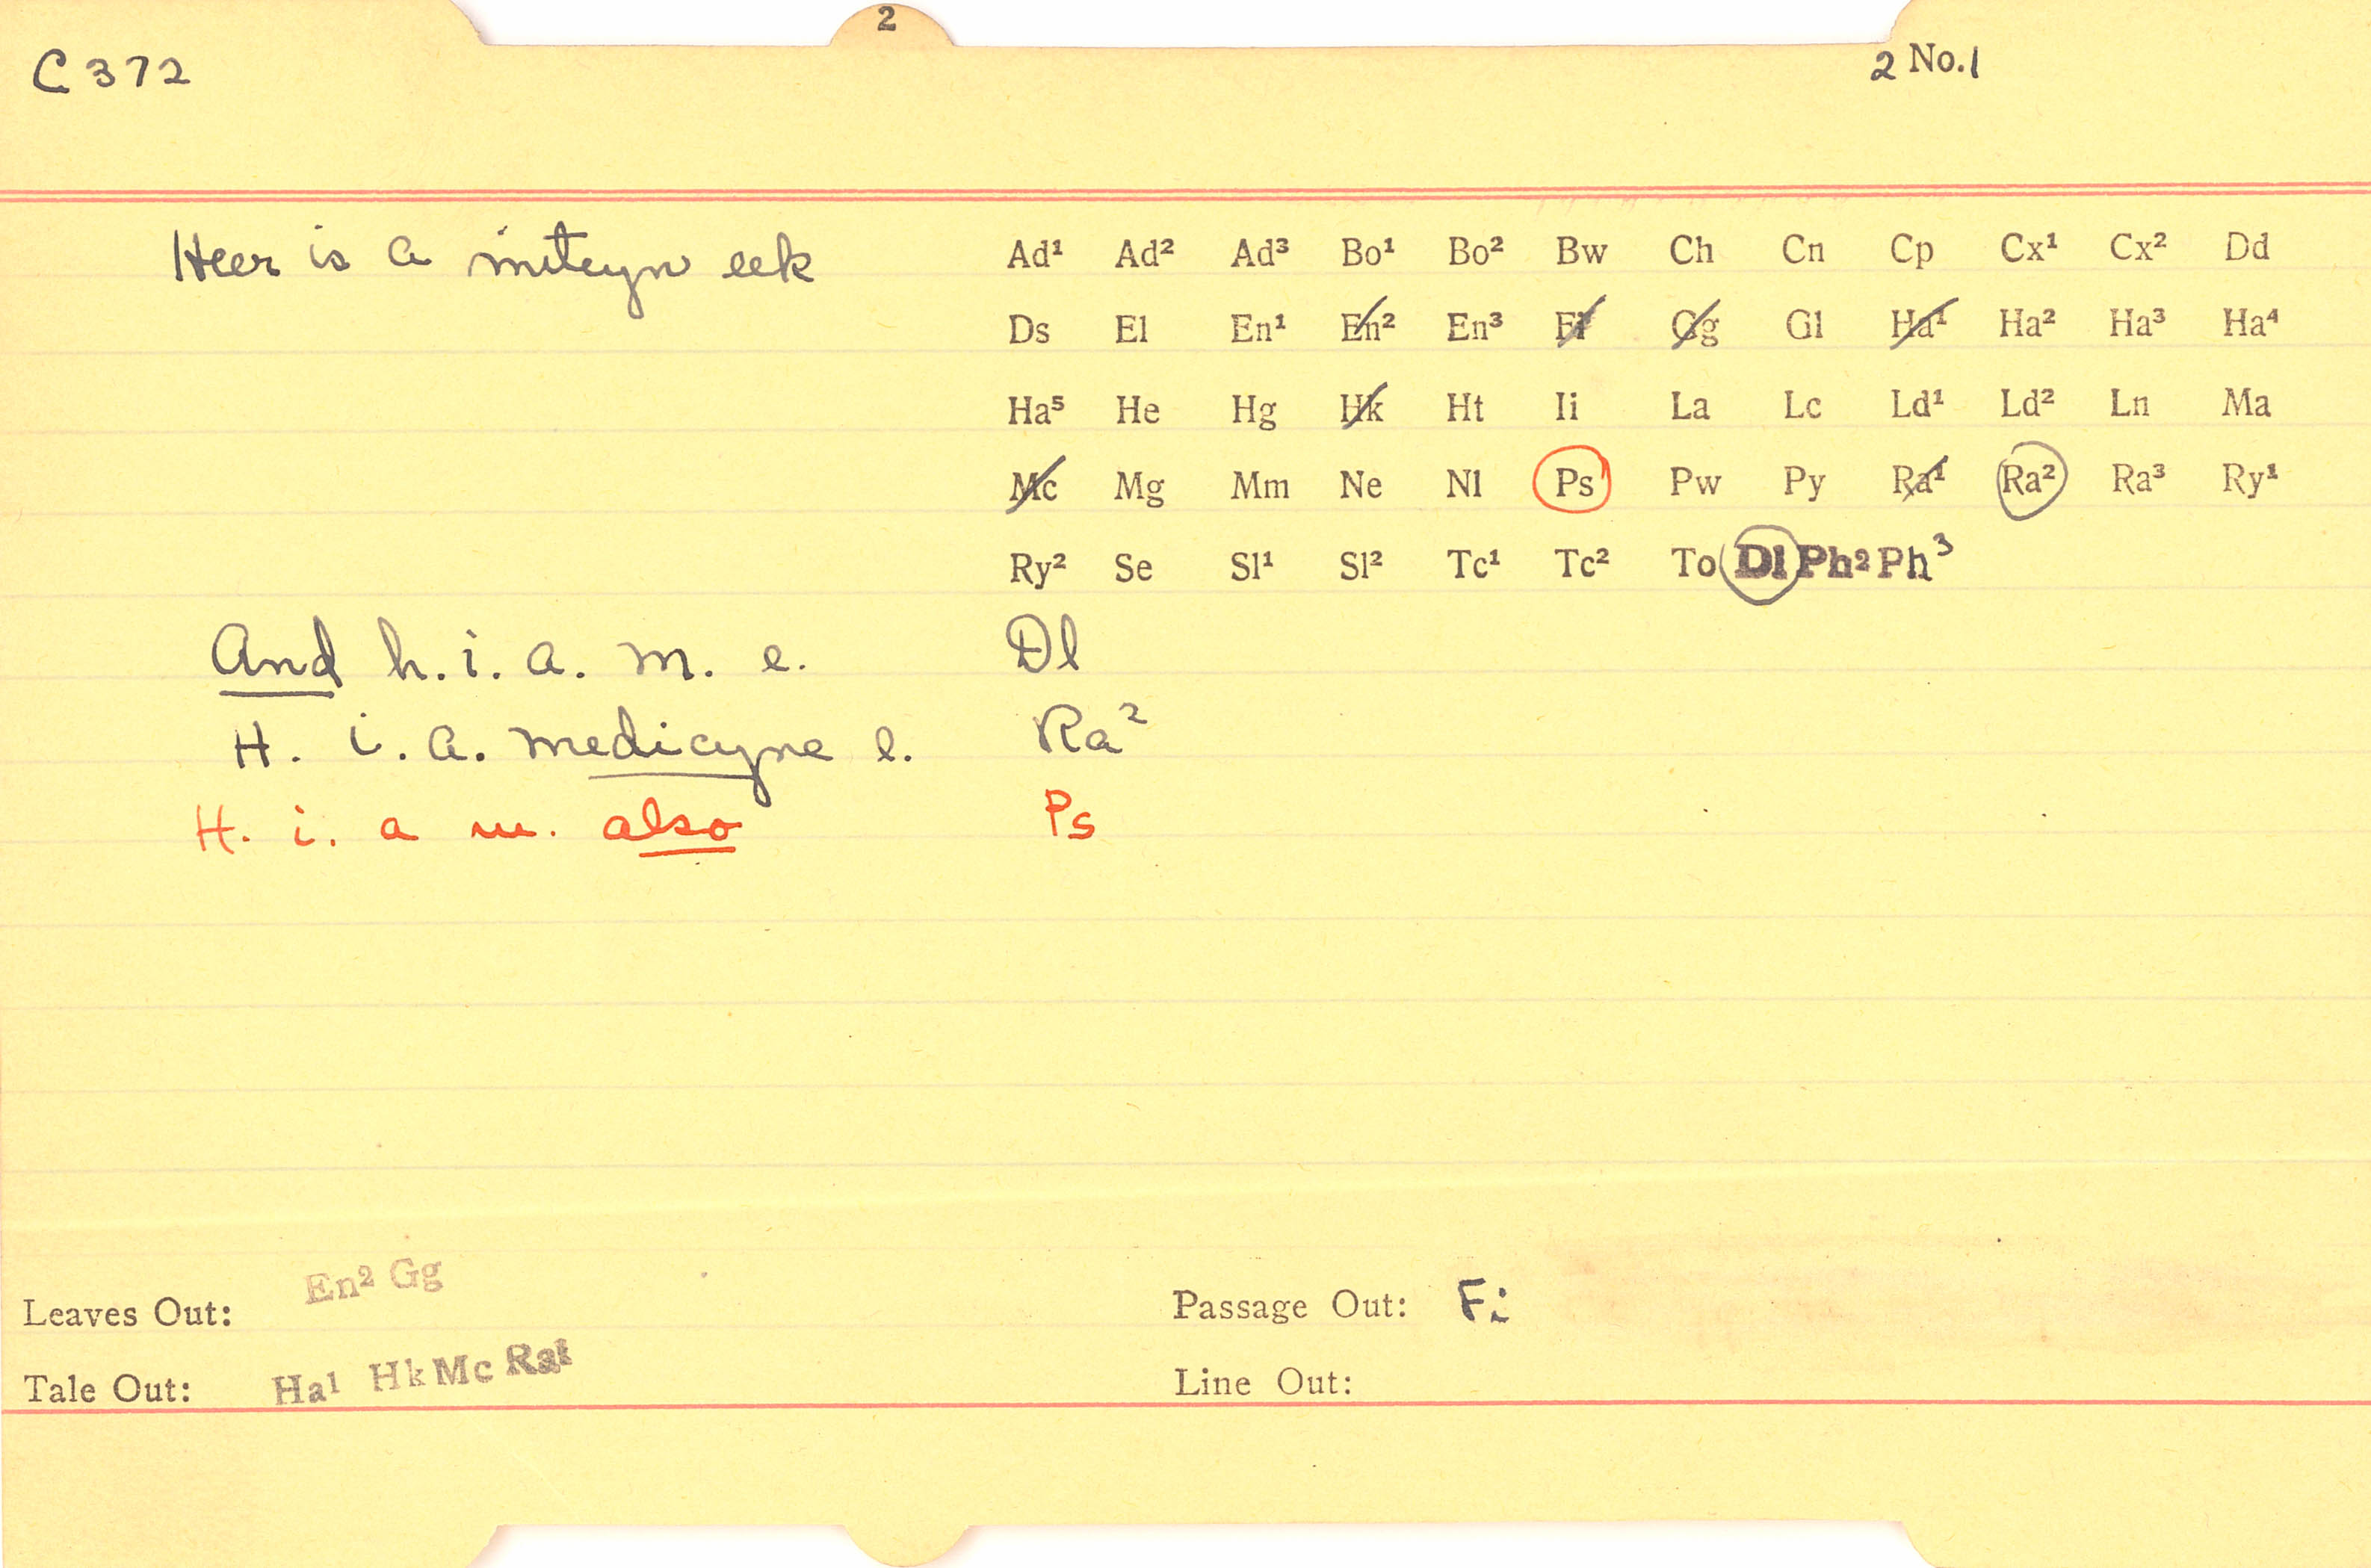 2
C 372
2 No. 1
Heer is a miteyn eek
Ad¹ Ad² Ad³ Bo¹ Bo² Bw Ch Cn Cp Cx¹ Cx² Dd
Ds El En¹ En² En³ Fi Gg Gl Ha¹ Ha² Ha³ Ha⁴
Ha⁵ He Hg Hk Ht Ii La Lc Ld¹ Ld² Ln Ma
Mc Mg Mm Ne Nl Ps Pw Py Ra¹ Ra² Ra³ Ry¹
Ry² Se Sl¹ Sl² Tc¹ Tc² To Dl Ph² Ph³
And h. i. a. m. e. Dl
H. i. a. medicyne e. Ra²
H. i. a m. also Ps
Leaves Out: En² Gg
Passage Out: Fi
Tale Out: Ha¹ Hk Mc Ra¹
Line Out: